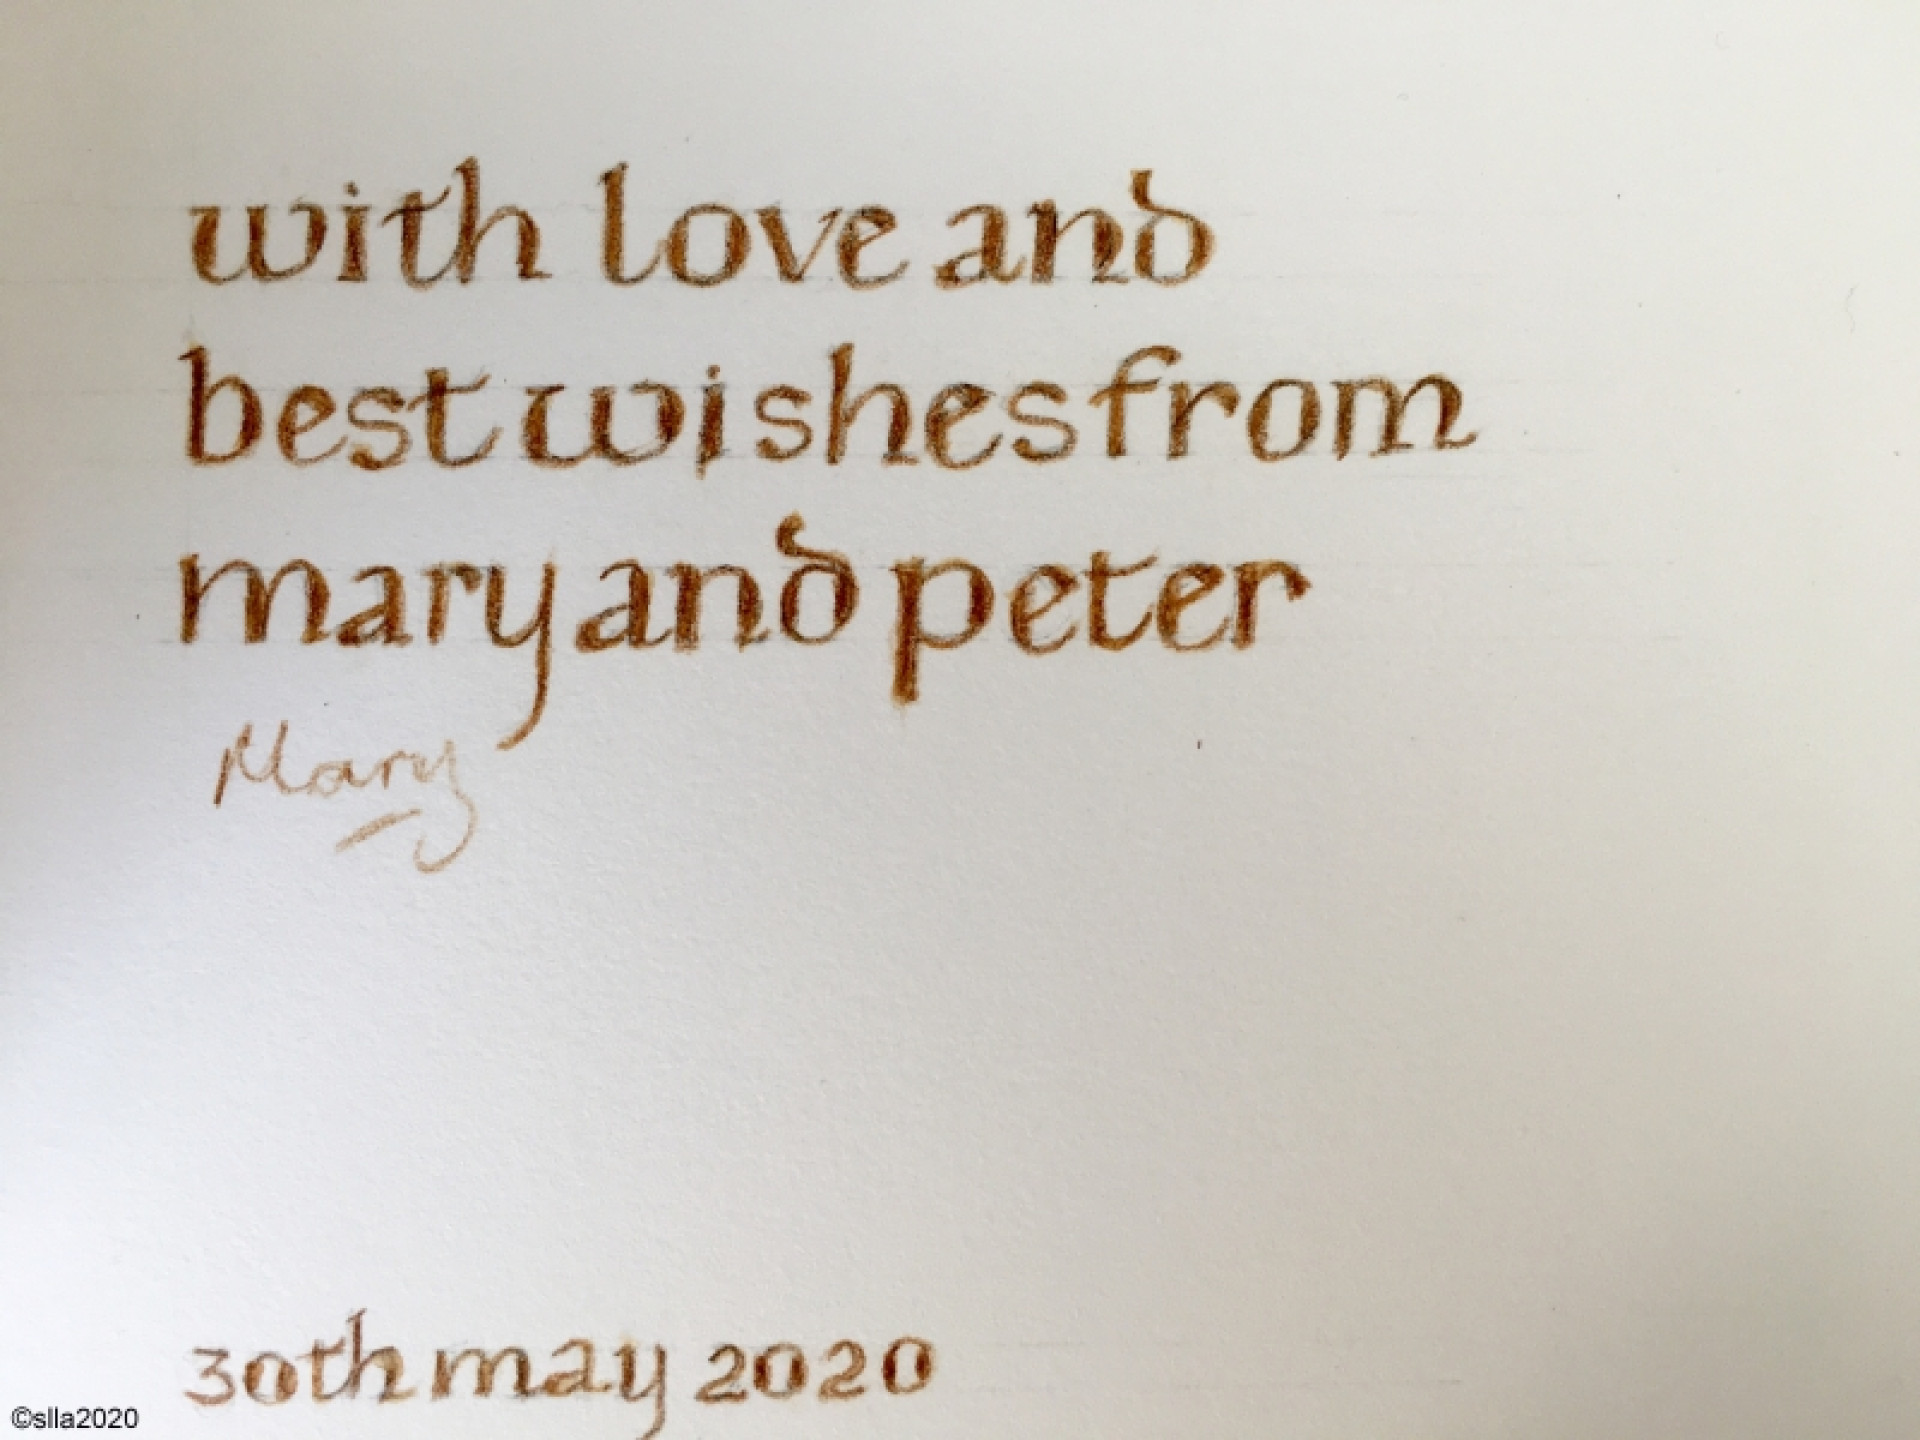 with love and
best wishes from
mary and peter
Mary
30th may 2020
©slla2020